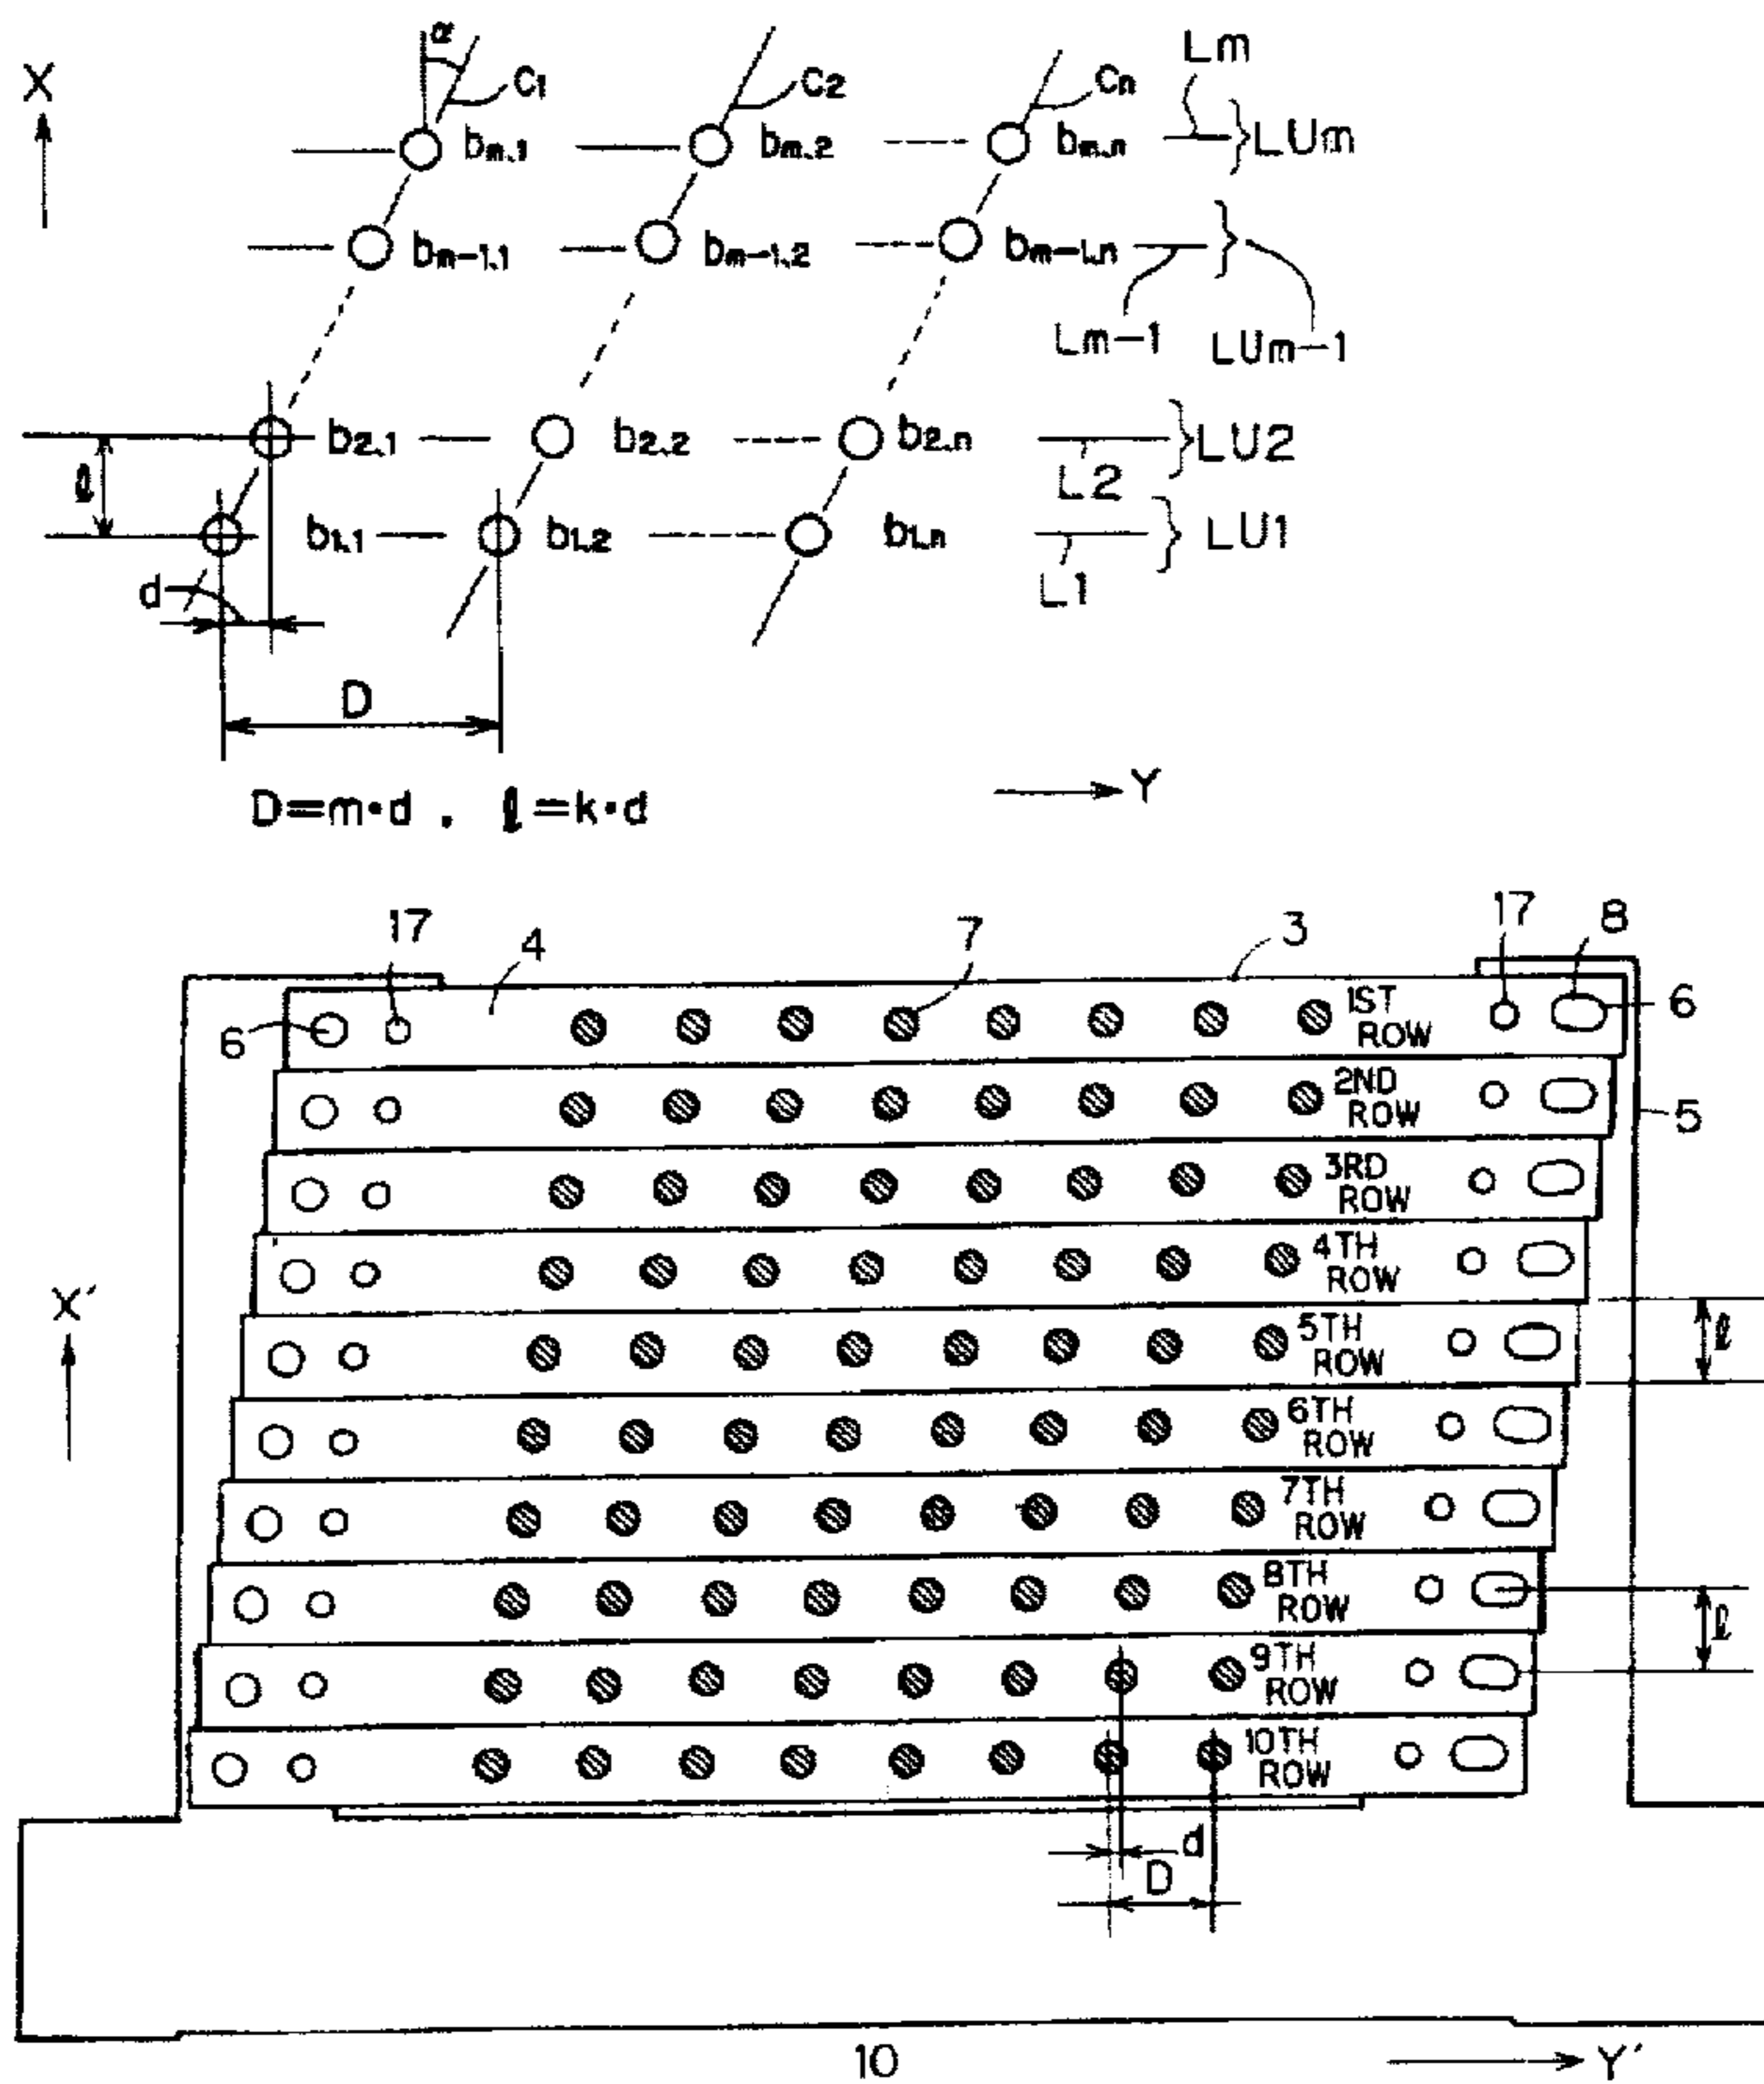 α
X C1 C2 Cn Lm
bm.1 bm.2 bm.n LUm
bm-1.1 bm-1.2 bm-1.n
Lm-1 LUm-1
b2.1 b2.2 b2.n LU2
ℓ L2
b1.1 b1.2 b1.n LU1
d L1
D
Y
D=m·d . ℓ=k·d
17 4 7 3 17 8
6 1ST ROW 6
2ND ROW 5
3RD ROW
4TH ROW
X′ 5TH ROW ℓ
6TH ROW
7TH ROW
8TH ROW ℓ
9TH ROW
10TH ROW
d
D
10 Y′